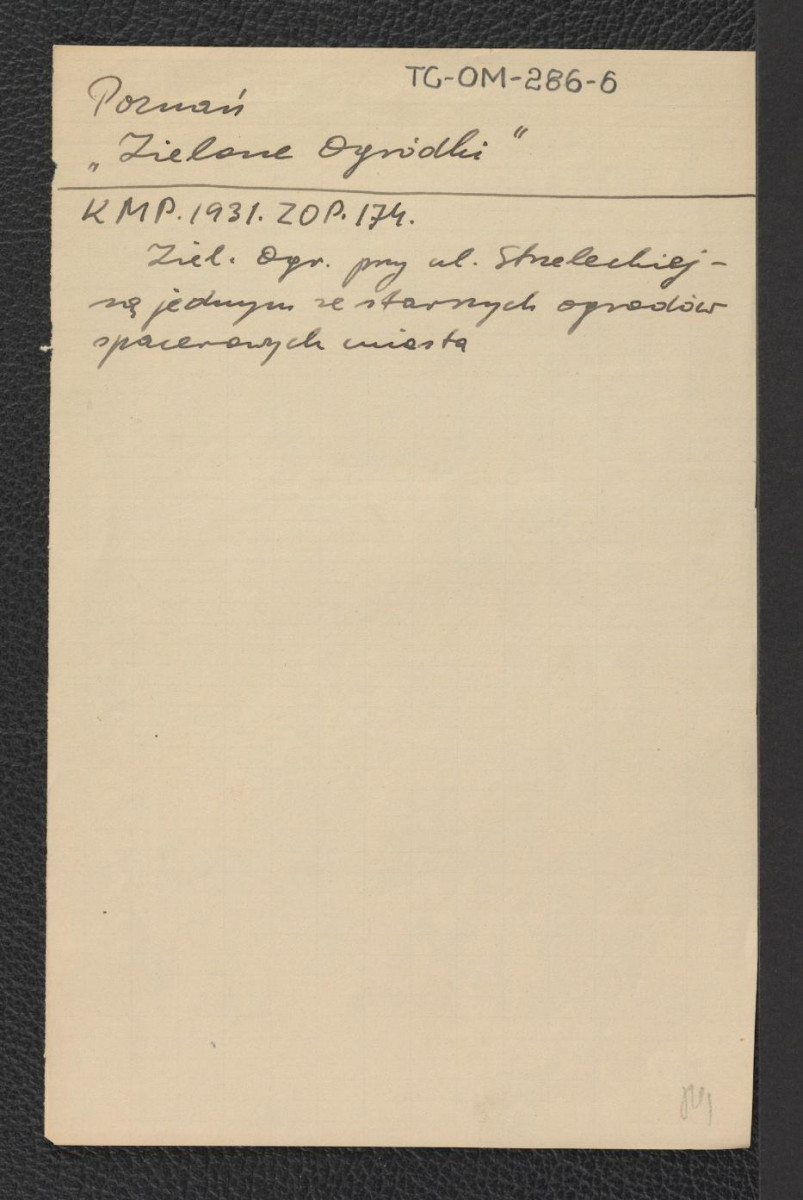 TG-OM-286-6
Poznań
„Zielone Ogródki"
KMP. 1931. ZOP. 174.
Ziel. Ogr. przy ul. Strzeleckiej -
są jednym ze starszych ogrodów
spacerowych miasta